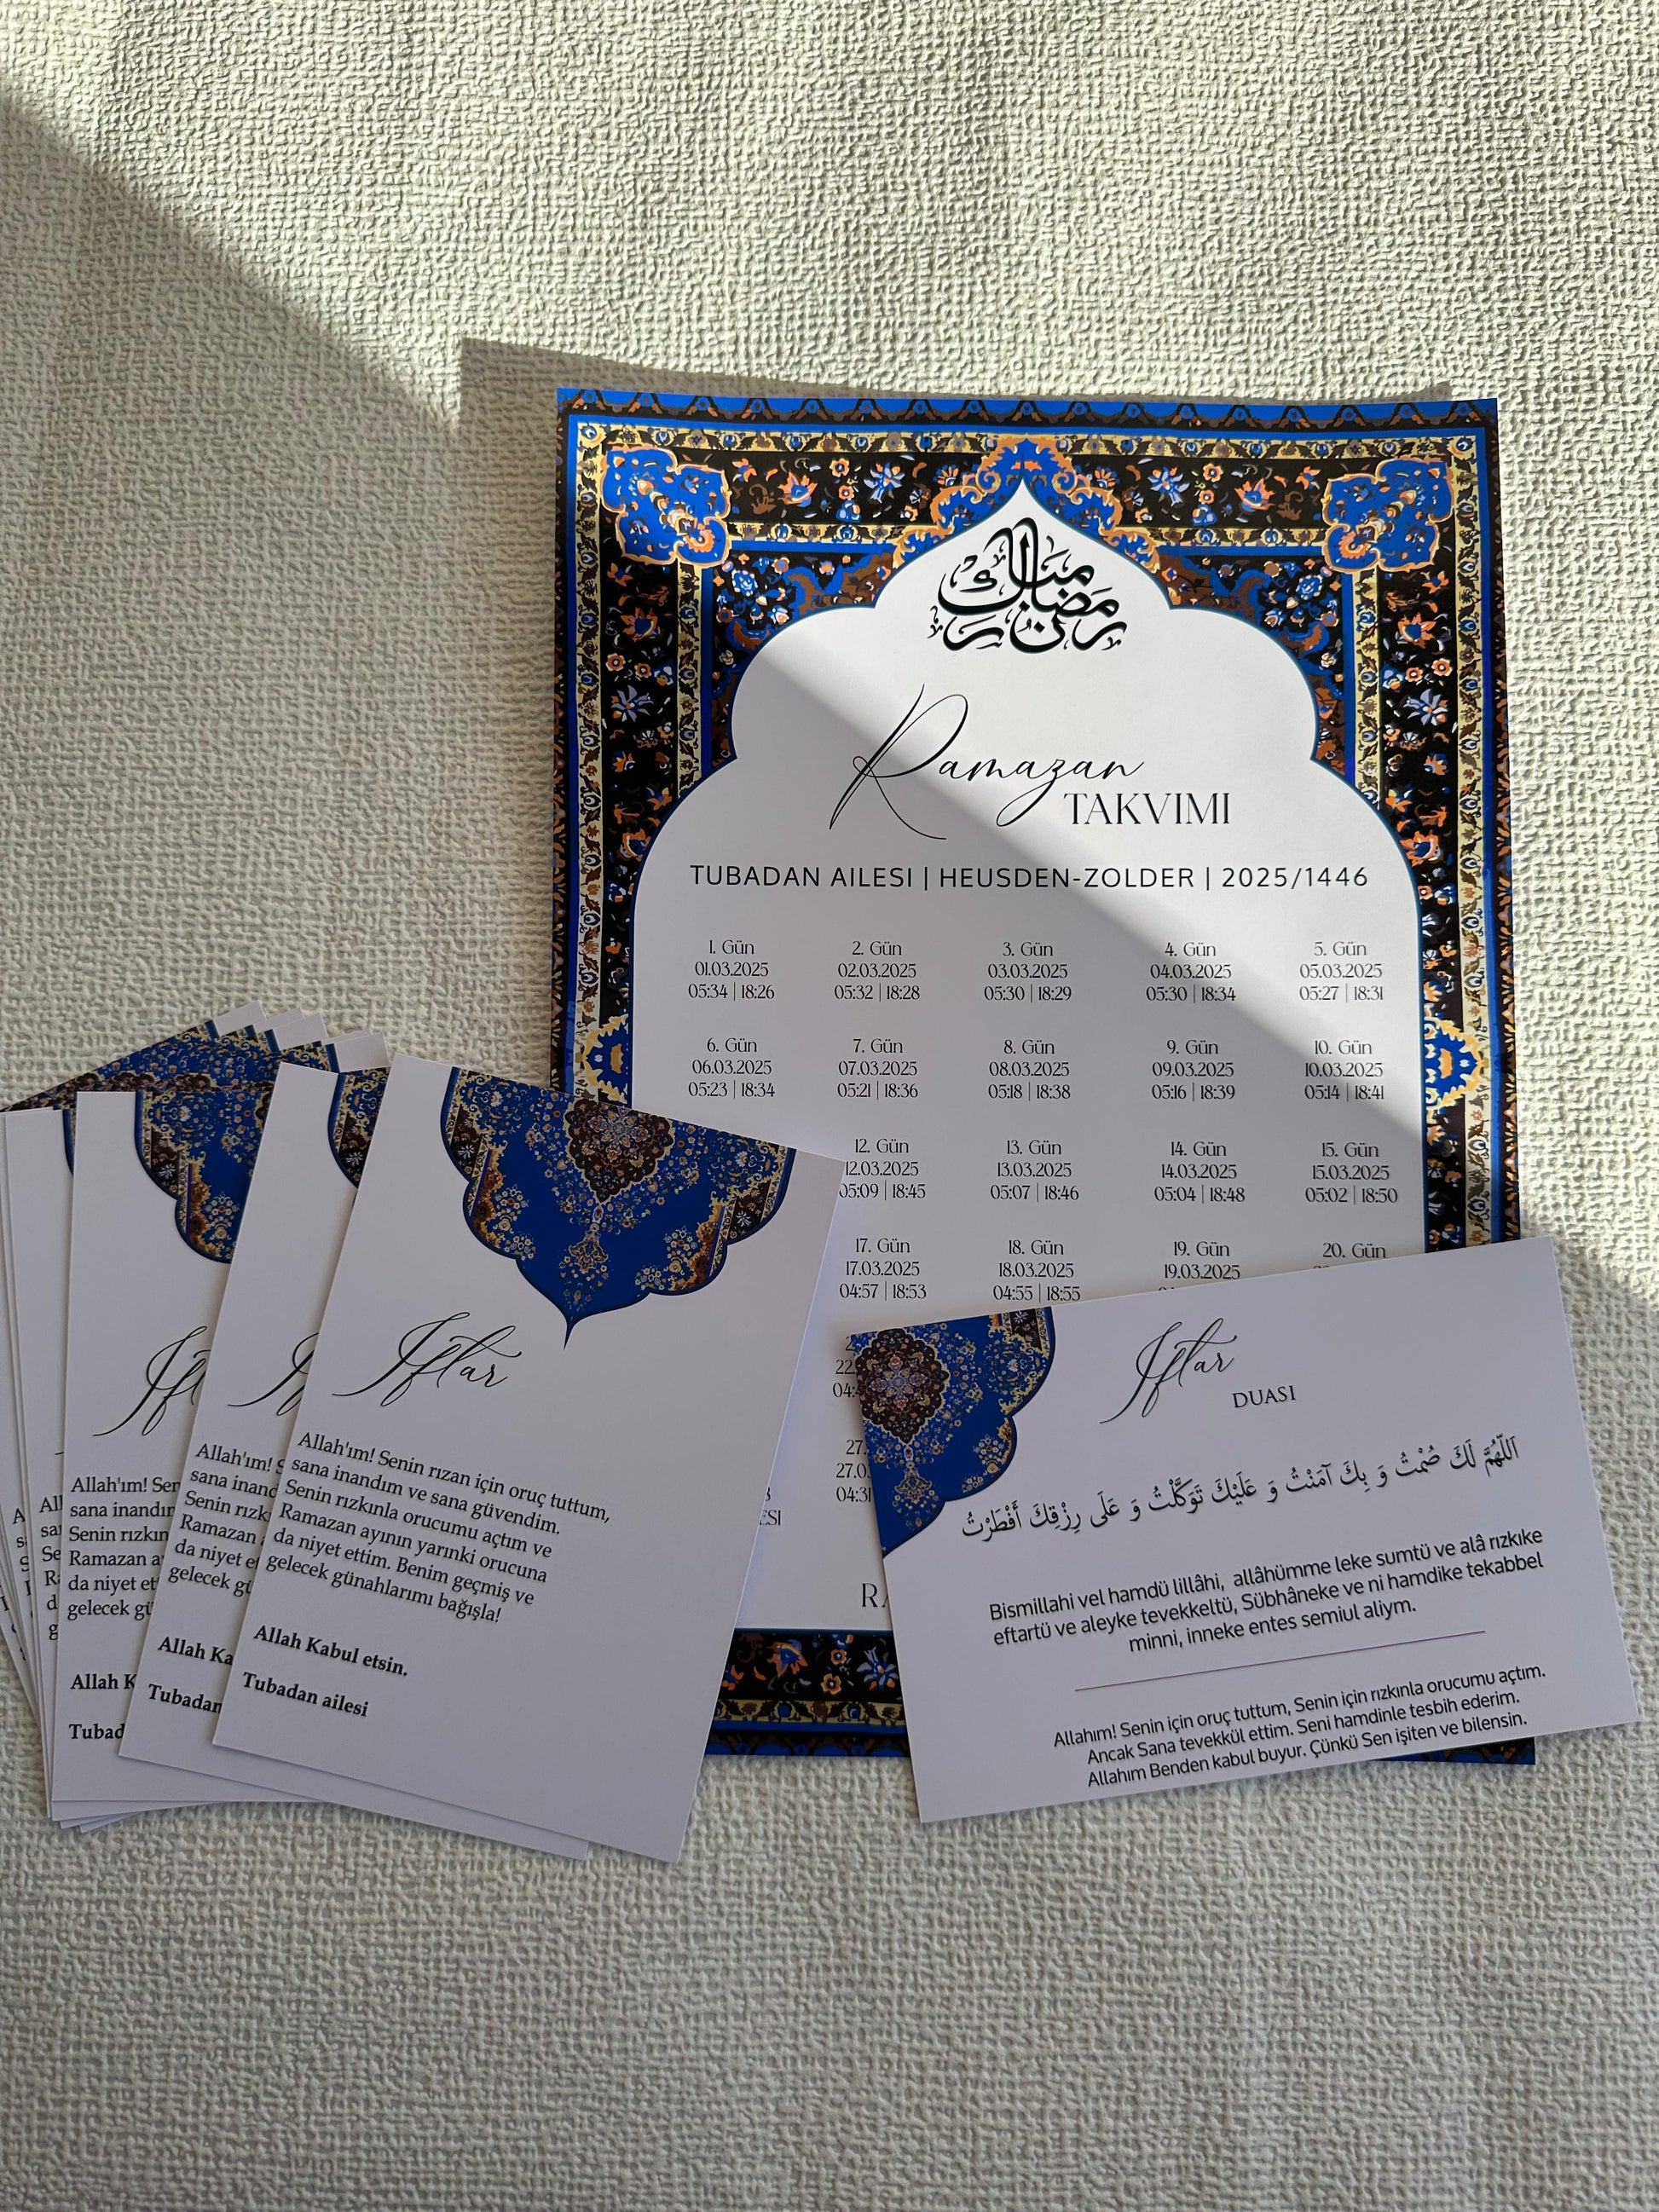 رمضان مبارك
Ramazan
TAKVIMI
TUBADAN AILESI | HEUSDEN-ZOLDER | 2025/1446
1. Gün 2. Gün 3. Gün 4. Gün 5. Gün
01.03.2025 02.03.2025 03.03.2025 04.03.2025 05.03.2025
05:34 | 18:26 05:32 | 18:28 05:30 | 18:29 05:30 | 18:34 05:27 | 18:31
6. Gün 7. Gün 8. Gün 9. Gün 10. Gün
06.03.2025 07.03.2025 08.03.2025 09.03.2025 10.03.2025
05:23 | 18:34 05:21 | 18:36 05:18 | 18:38 05:16 | 18:39 05:14 | 18:41
12. Gün 13. Gün 14. Gün 15. Gün
12.03.2025 13.03.2025 14.03.2025 15.03.2025
05:09 | 18:45 05:07 | 18:46 05:04 | 18:48 05:02 | 18:50
17. Gün 18. Gün 19. Gün 20. Gün
17.03.2025 18.03.2025 19.03.2025
04:57 | 18:53 04:55 | 18:55
27.
Iftar
Allah'ım! Senin rızan için oruç tuttum,
sana inandım ve sana güvendim.
Senin rızkınla orucumu açtım ve
Ramazan ayının yarınki orucuna
da niyet ettim. Benim geçmiş ve
gelecek günahlarımı bağışla!
Allah Kabul etsin.
Tubadan ailesi
Allah'ım!
Senin
Ramazan
da niyet
Tubadan
Allah'ım!
sana
Senin
da niyet
gelecek
Allah
Iftar
DUASI
اَللّٰهُمَّ لَكَ صُمْتُ وَ بِكَ آمَنْتُ وَ عَلَيْكَ تَوَكَّلْتُ وَ عَلَى رِزْقِكَ أَفْطَرْتُ
Bismillahi vel hamdü lillâhi, allâhümme leke sumtü ve alâ rızkıke
eftartü ve aleyke tevekkeltü, Sübhâneke ve ni hamdike tekabbel
minni, inneke entes semiul aliym.
Allahım! Senin için oruç tuttum, Senin için rızkınla orucumu açtım.
Ancak Sana tevekkül ettim. Seni hamdinle tesbih ederim.
Allahım Benden kabul buyur. Çünkü Sen işiten ve bilensin.